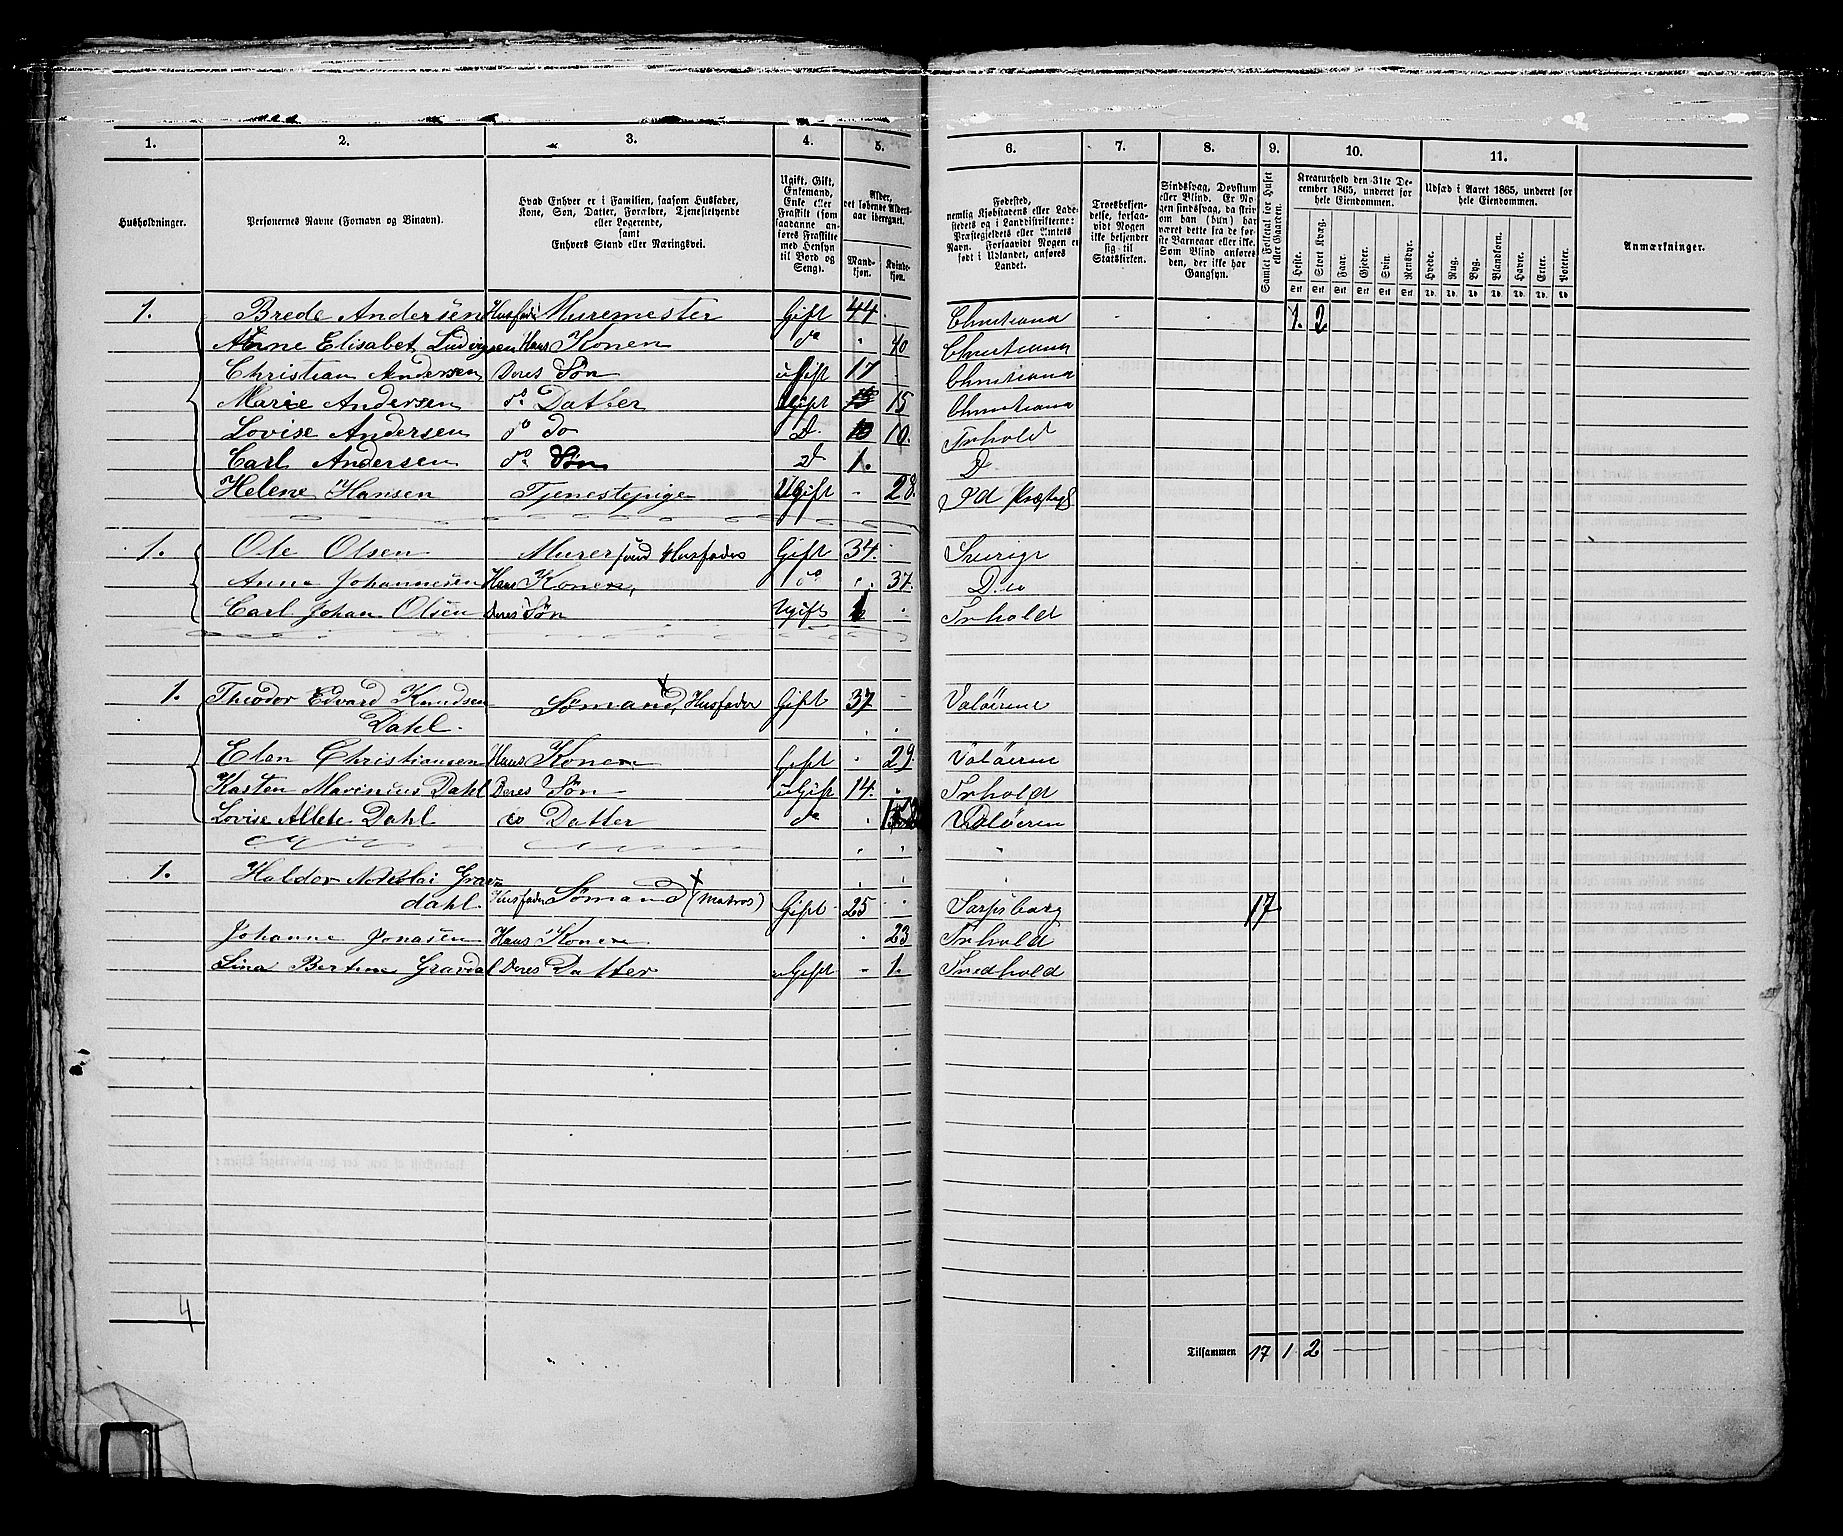 1. 2. 3. 4. 5. 6. 7. 8. 9. 10. 11.
Husholdninger.
Personernes Navne (Fornavn og Binavn).
Hvad Enhver er i Familien, saasom Husfader,
Kone, Søn, Datter, Forældre, Tjenestetyende
eller Logerende,
samt
Enhvers Stand eller Næringsvei.
Ugift, Gift,
Enkemand,
Enke eller
Fraskilt (som
saadanne an-
føres Fraskilte
med Hensyn
til Bord og
Seng).
Alder,
det løbende Alders-
aar iberegnet.
Mand-
kjøn.
Kvinde-
kjøn.
Fødested,
nemlig Kjøbstadens eller Lade-
stedets og i Landdistrikterne:
Præstegjeldets eller Amtets
Navn. Forsaavidt Nogen er
født i Udlandet, anføres
Landet.
Troesbekjen-
delse, forsaa-
vidt Nogen
ikke bekjender
sig til
Statskirken.
Sindssvag, Døvstum
eller Blind. Er No-
gen sindssvag, da skriv
om han (hun) har
været dette fra de før-
ste Barneaar eller ikke.
Som Blind anføres
den, der ikke har
Gangsyn.
Samlet Folketal for Huset
eller Gaarden.
Kreaturhold den 31te De-
cember 1865, underet for
hele Eiendommen.
Heste. Stort Kvæg. Faar. Gjeder. Svin. Rensdyr.
Stk Stk Stk Stk Stk Stk
Udsæd i Aaret 1865, underet for
hele Eiendommen.
Hvede. Rug. Byg. Blandkorn. Havre. Erter. Poteter.
Td. Td. Td. Td. Td. Td. Td.
Anmærkninger.
1. Brede Andersen Husfader Muremester Gift 44 Christiania 1. 2
Anne Elisabet Ludvigsen Hans Konen do 40 Christiania
Christian Andersen Deres Søn ugift 17 Christiania
Marie Andersen do Datter Ugift 15 Christiania
Lovise Andersen do do D 10. Trhold
Carl Andersen do Søn D 1. D
Helene Hansen Tjenestepige Ugift 28. Id Præstegj
1. Ole Olsen Murersvend Husfader Gift 34. Sverige
Anna Johannesen Hans Konen, do 37. Do
Carl Johan Olsen Deres Søn Ugift 1 Trhold
1. Theodor Edvard Knudsen Sømand, Husfader Gift 37 Valöerne
Dahl.
Elen Christiansen Hans Konen Gift 29. Valöerne
Kasten Marinius Dahl Deres Søn uGift 14. Trhold
Lovise Allete Dahl do Datter do Valöerne
1. Haldor Nikolai Grav
dahl. Husfader Sømand (Matros) Gift 25 Sarpsborg 17
Johanne Jonasen Hans Konen 23 Trhold
Lina Bertine Gravdal Deres Datter uGift 1. Fredhold
4
Tilsammen 17 1 2